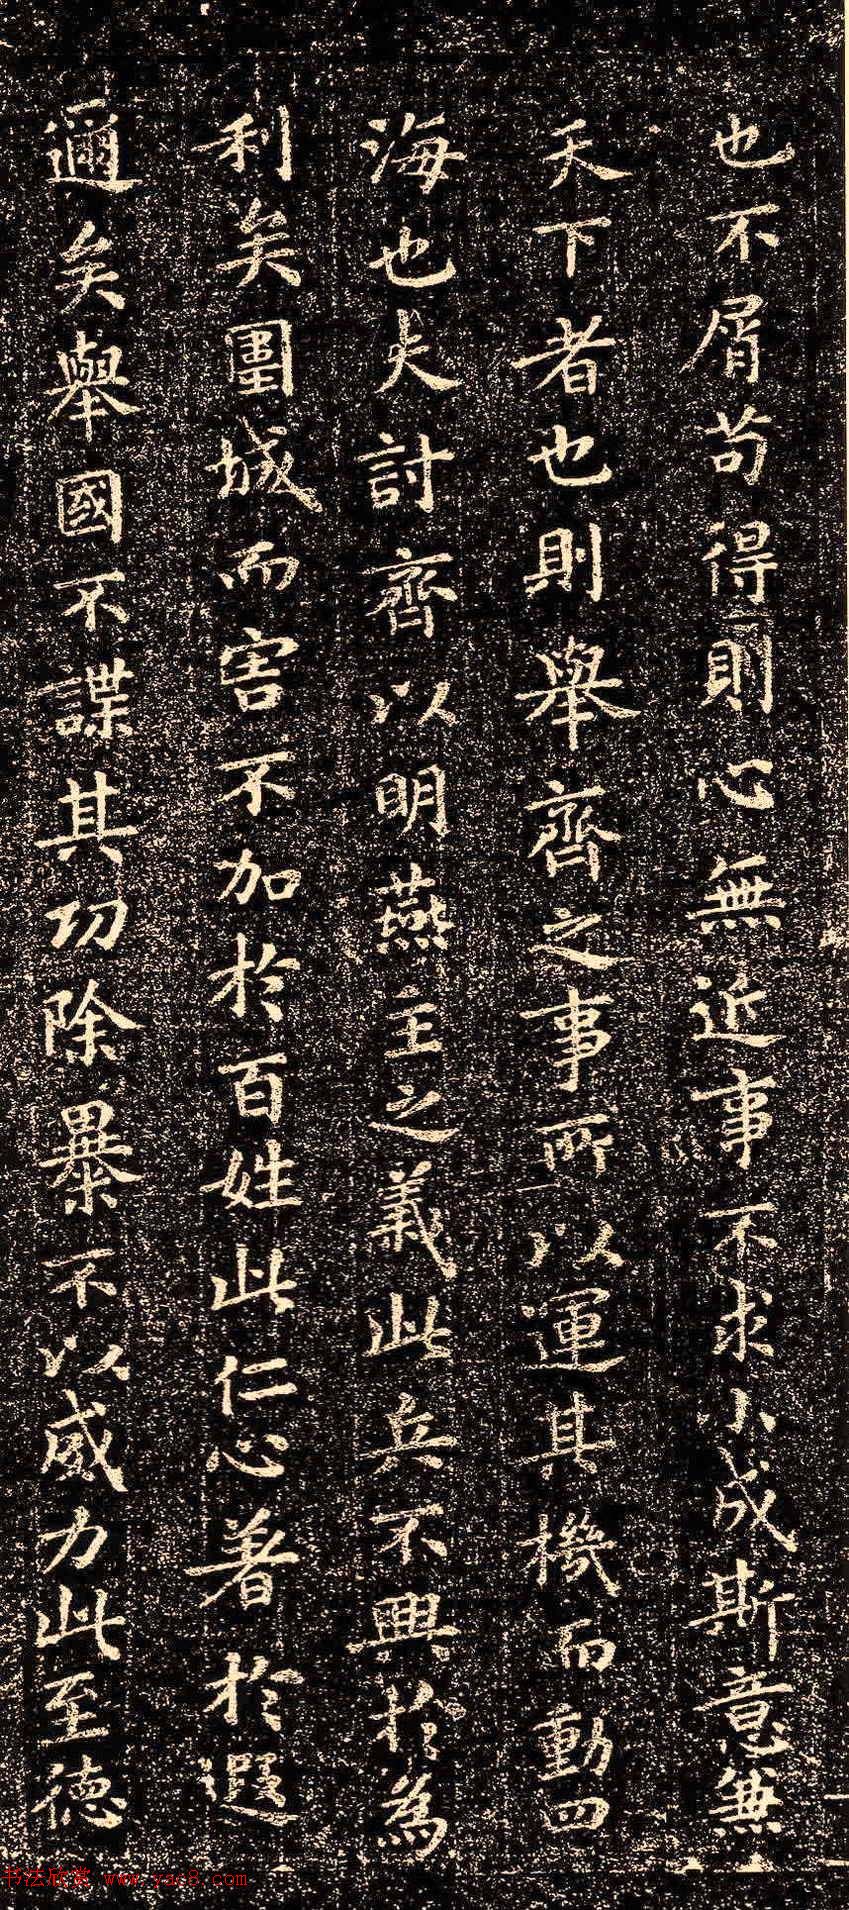 也不屑苟得則心無近事不求小成斯意兼
天下者也則舉齊之事所以運其機而動四
海也夫討齊以明燕主之義此兵不興於為
利矣圍城而害不加於百姓此仁心著於遐
邇矣舉國不謀其功除暴不以威力此至德
书法欣赏 www.yac8.com